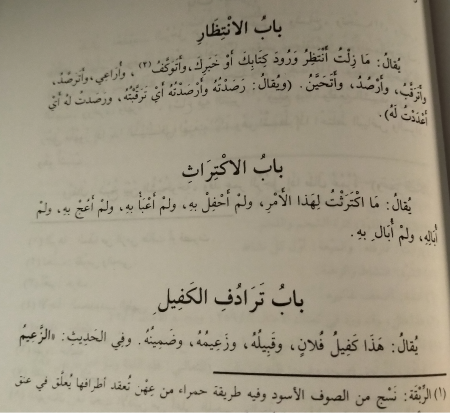 بابُ الانْتِظَارِ
يُقالُ: مَا زِلْتُ أَنْتَظِرُ وُرُودَ كِتابِكَ أَوْ خَبَرِكَ، وأَتَوَكَّفُ(٢)، وأُرَاعِي، وأَتَرَصَّدُ،
وأَتَرَقَّبُ، وأَرْصُدُ، وأَتَحَيَّنُ. (ويُقالُ: رَصَدْتُهُ وأَرْصَدْتُهُ أَيْ تَرَقَّبْتُهُ، ورَصَدتُ لَهُ أَيْ
أَعْدَدْتُ لَهُ).
بابُ الاكْتِرَاثِ
يُقالُ: مَا اكْتَرَثْتُ لِهَذا الأَمْرِ، ولَمْ أَحْفِلْ بِهِ، ولَمْ أَعْبَأْ بِهِ، ولَمْ أَعُجْ بِهِ، ولَمْ
أُبَالِهِ، ولَمْ أُبَالِ بِهِ.
بابُ تَرَادُفِ الكَفِيلِ
يُقالُ: هَذَا كَفِيلُ فُلانٍ، وقَبِيلُهُ، وزَعِيمُهُ، وضَمِينُهُ. وفِي الحَدِيثِ: «الزَّعِيمُ
(١) الرِّبْقَة: نَسْج من الصوف الأسود وفيه طريقة حمراء من عِهْن تُعقد أطرافها يُعلَّق في عنق